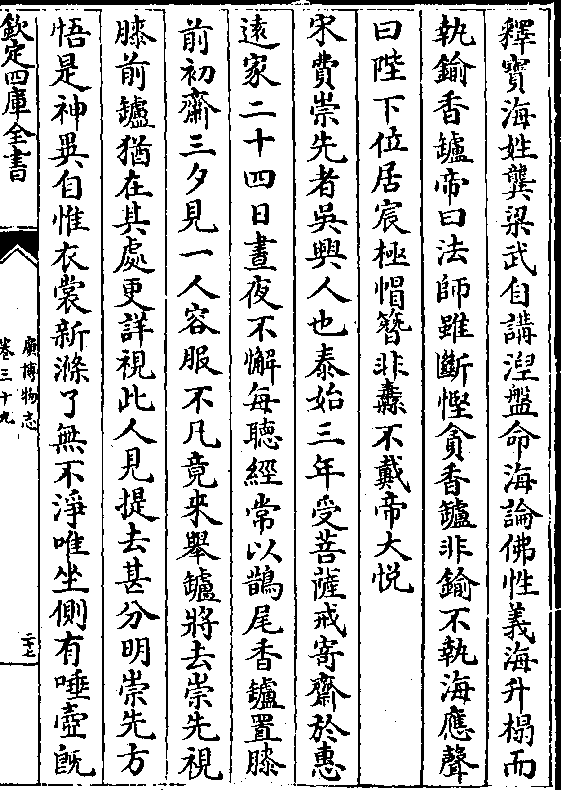 釋寳海姓龔梁武自講湼盤命海論佛性義海升榻而
執鍮香鑪帝曰法師雖斷慳貪香鑪非鍮不執海應聲
曰陛下位居宸極帽簪非纛不戴帝大悦
宋費崇先者吳興人也泰始三年受菩薩戒寄齋於惠
逺家二十四日晝夜不懈每聽經常以鵲尾香鑪置膝
前初齋三夕見一人容服不凡竟來舉鑪將去崇先視
膝前鑪猶在其處更詳視此人見提去甚分明崇先方
悟是神異自惟衣裳新滌了無不淨唯坐側有唾壺既
欽定四庫全書
廣博物志
卷三十九
三七